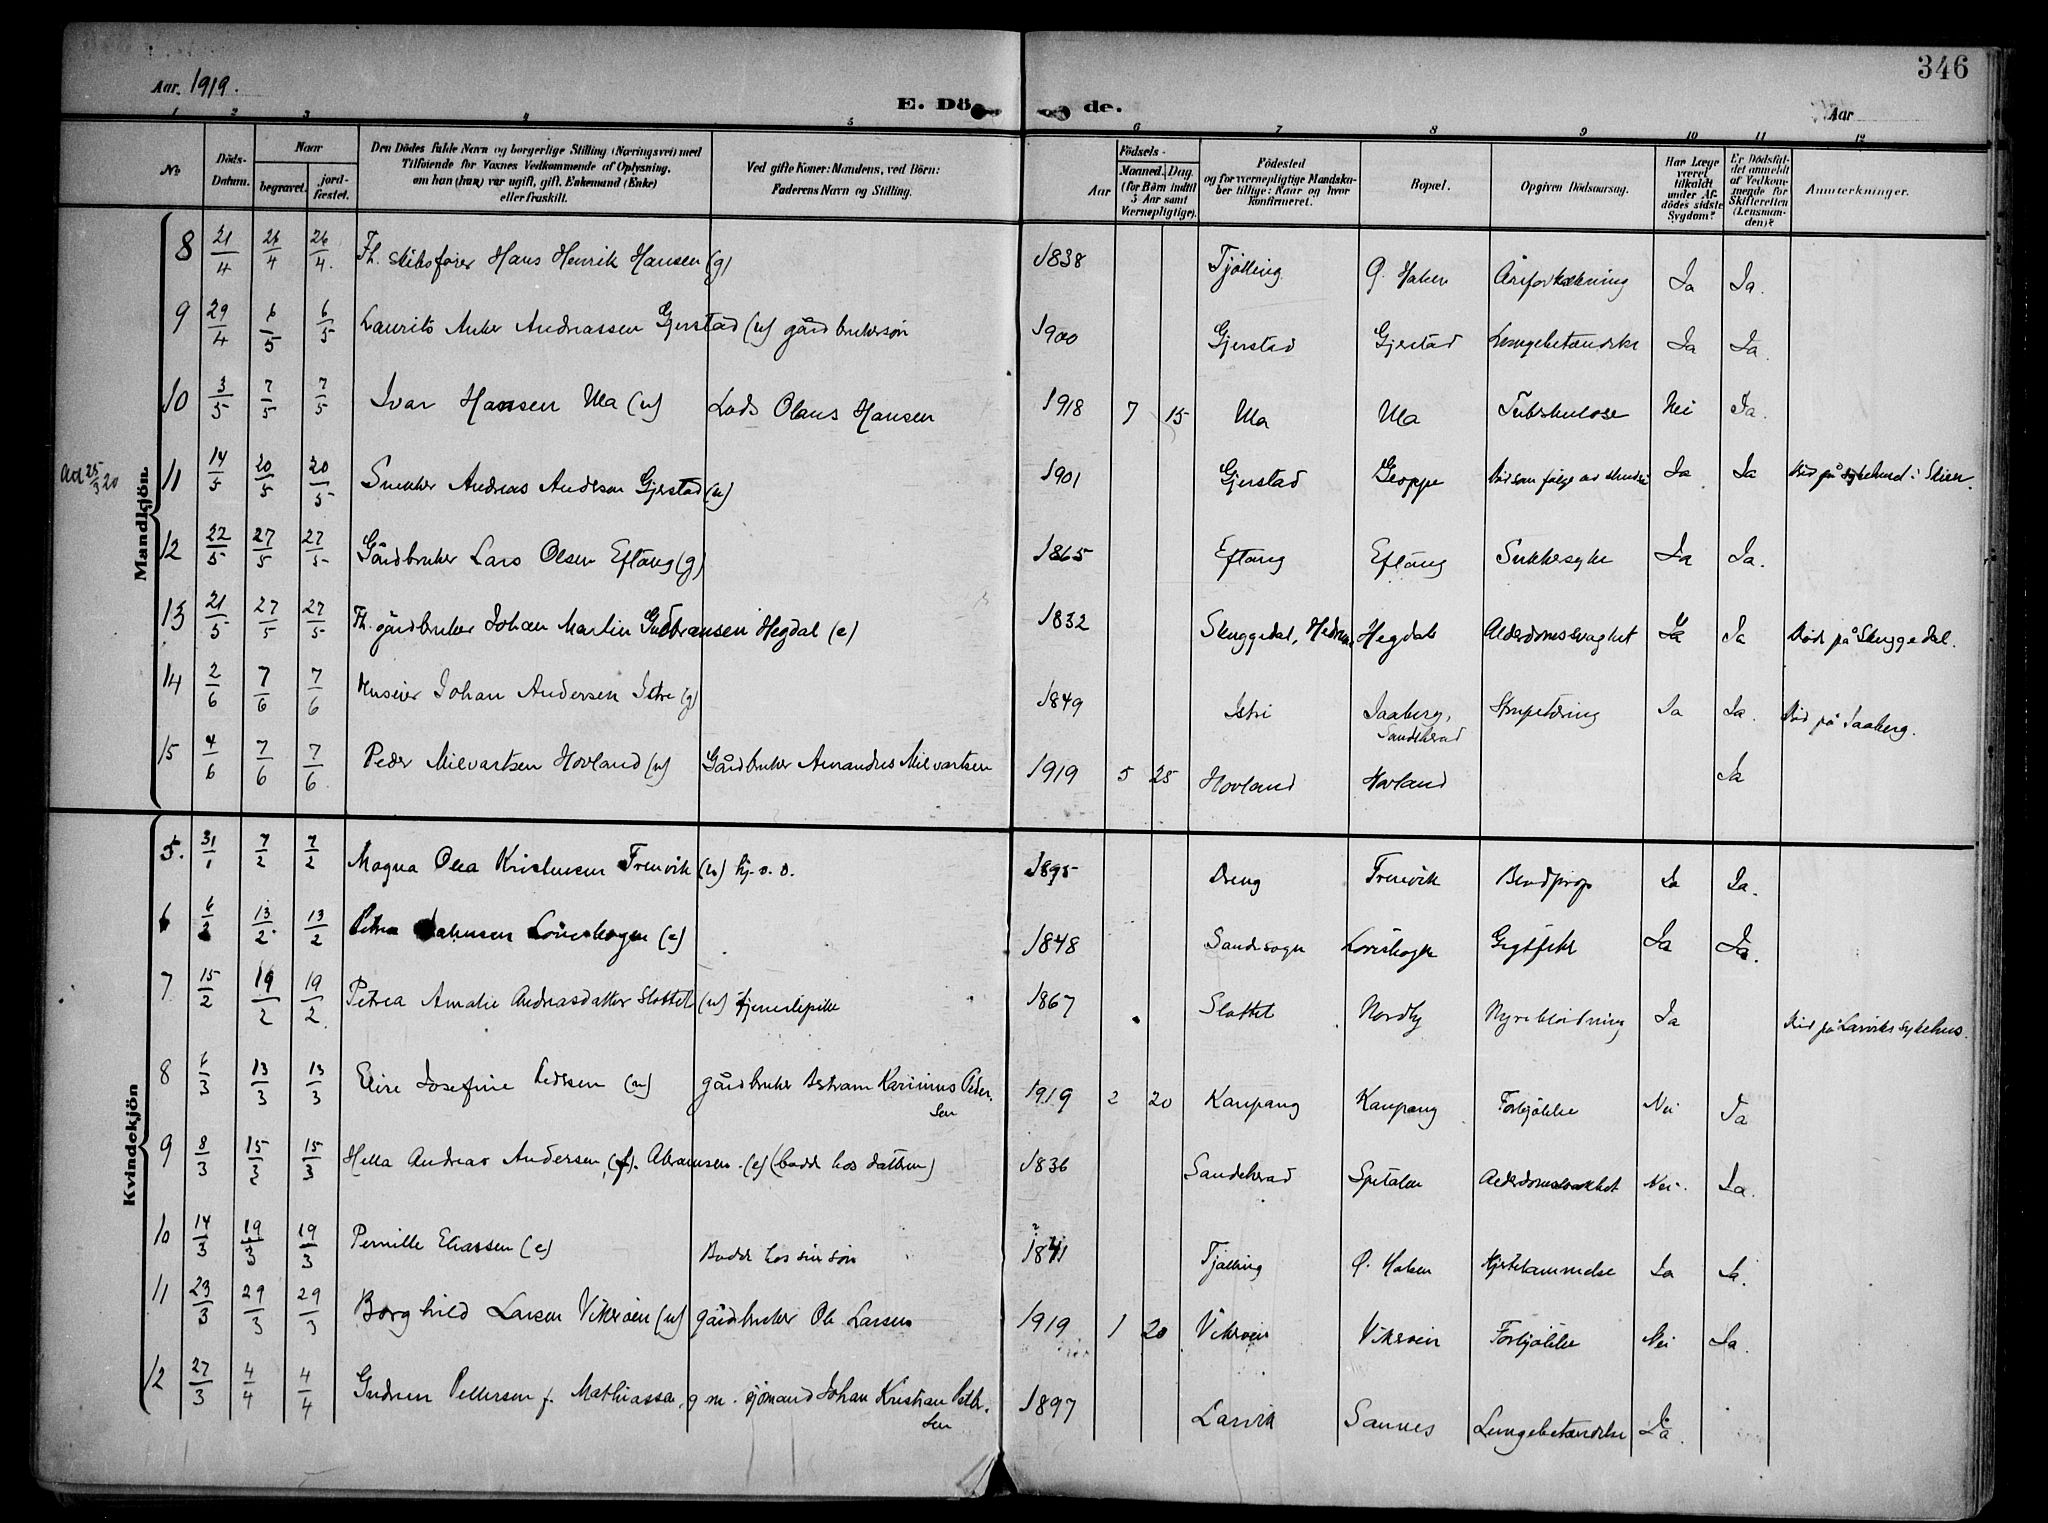 346
Aar 1919.
E. Dö de.
Aar
1 2 3 4 5 6 7 8 9 10 11 12
No
Döds-Datum.
Naar
begravet.
jord-fæstet.
Den Dödes fulde Navn og borgerlige Stilling (Næringsvei) med
Tilföiende for Voxnes Vedkommende af Oplysning,
om han (hun) var ugift, gift, Enkemand (Enke)
eller fraskilt.
Ved gifte Koner: Mandens, ved Börn:
Faderens Navn og Stilling.
Födsels-
Aar
Maaned. Dag.
(for Börn indtil
5 Aar samt
Værnepligtige).
Födested
og for værnepligtige Mandska-
ber tillige: Naar og hvor
konfirmeret.
Bopæl.
Opgiven Dödsaarsag.
Har Læge
været
tilkaldt
under Af-
dödes sidste
Sygdom?
Er Dödsfal-
det anmeldt
af Vedkom-
mende for
Skifteretten
(Lensman-
den)?
Anmærkninger.
Mandkjön.
8 21/4 26/4 26/4. Fh. skibsfører Hans Henrik Hansen (g) 1838 Tjølling Ø. Halsen Åreforkalkning Ja Ja.
9 29/4 6/5 6/5 Laurits Anker Andreassen Gjerstad (u) gårdbrukersøn 1900 Gjerstad Gjerstad Lungebetændelse Ja Ja.
10 3/5 7/5 7/5 Ivar Hansen Ula (u) Lods Olaus Hansen 1918 7 15 Ula Ula Tuberkulose Nei Ja.
25/3 20 11 14/5 20/5 20/5 Snekker Andreas Andersen Gjerstad (u) 1901 Gjerstad Gloppe Død som følge av Ja Ja Død på sykehus i Skien.
12 22/5 27/5 27/5 Gårdbruker Lars Olsen Eftang (g) 1865 Eftang Eftang Sukkersyke Ja Ja.
13 21/5 27/5 27/5 Fh. gårdbruker Johan Martin Gudbransen Hegdal (e) 1832 Skuggedal, Hedrum Hegdal Alderdomssvaghet Ja Ja Død på Skuggedal.
14 2/6 7/6 7/6 Huseier Johan Andersen Istre (g) 1849 Istre Jaaberg, Sandeherad Strupetæring Ja Ja. Død på Jaaberg.
15 4/6 7/6 7/6 Peder Milvartsen Hovland (u) Gårdbruker Amandus Milvartsen 1919 5 25 Hovland Hovland Ja
Kvindekjön
5. 31/1 7/2 7/2 Magna Olea Kristensen Trenvik (u) hj. v. d. 1895 Dreng Trenvik Blodprop Ja Ja.
6 6/2 13/2 13/2 Petrea (e) 1848 Sandesogn Løveskogen Gigtfeber Ja Ja.
7 15/2 19/2 19/2 Petrea Amalie Andreasdatter Slottet (u) tjenestepike 1867 Slottet Nordby Nyreblødning Ja Død på Larviks sykehus.
8 6/3 13/3 13/3 Elise Josefine Pedersen (u) gårdbruker Bertram Karinius Peder-
sen 1919 2 20 Kaupang Kaupang Forkjølelse Nei Ja
9 8/3 15/3 15/3 Hella Andrea Andersen, (f). Abramsen. (e) (bodde hos datteren) 1836 Sandeherad Spetalen Alderdomssvakhet Nei. Ja.
10 14/3 19/3 19/3 Pernille Eliassen (e) Bodde hos sin søn 1841 Tjølling Ø. Halsen Hjertelammelse Ja Ja.
11 23/3 29/3 29/3 Borghild Larsen Vikersen (u) gårdbruker Ole Larsen 1919 1 20 Forkjølelse Nei Ja.
12 27/3 4/4 4/4 Gudrun Pettersen f. Mathiassen, g. m. sjømand Johan Kristian Petter-
sen 1897 Larvik Sannes Lungebetændelse Ja.